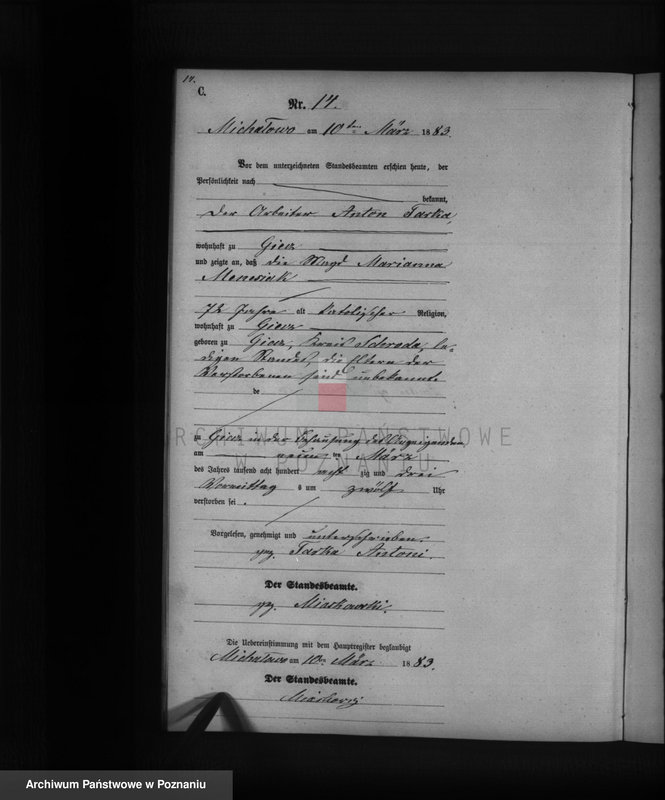 14.
C.
Nr. 14.
Michałowo am 10ten März 1883.
Vor dem unterzeichneten Standesbeamten erschien heute, der
Persönlichkeit nach
bekannt,
der Arbeiter Anton Tarka
wohnhaft zu Giecz
und zeigte an, daß die Magd Marianna
72 Jahre alt katolischer Religion,
wohnhaft zu Giecz
geboren zu Giecz, Kreis Schroda, le-
digen Standes, die Eltern der
Verstorbenen sind unbekannt
de
ARCHIWUM PAŃSTWOWE
W POZNANIU
zu Giecz in der Behausung des Anzeigenden
am neun ten März
des Jahres tausend acht hundert acht zig und drei
Vormittag s um zwölf Uhr
verstorben sei.
Vorgelesen, genehmigt und unterschrieben.
gez. Tarka Antoni.
Der Standesbeamte.
gez. Miaskowski.
Die Uebereinstimmung mit dem Hauptregister beglaubigt
Michałowo am 10ten März 1883.
Der Standesbeamte.
Archiwum Państwowe w Poznaniu